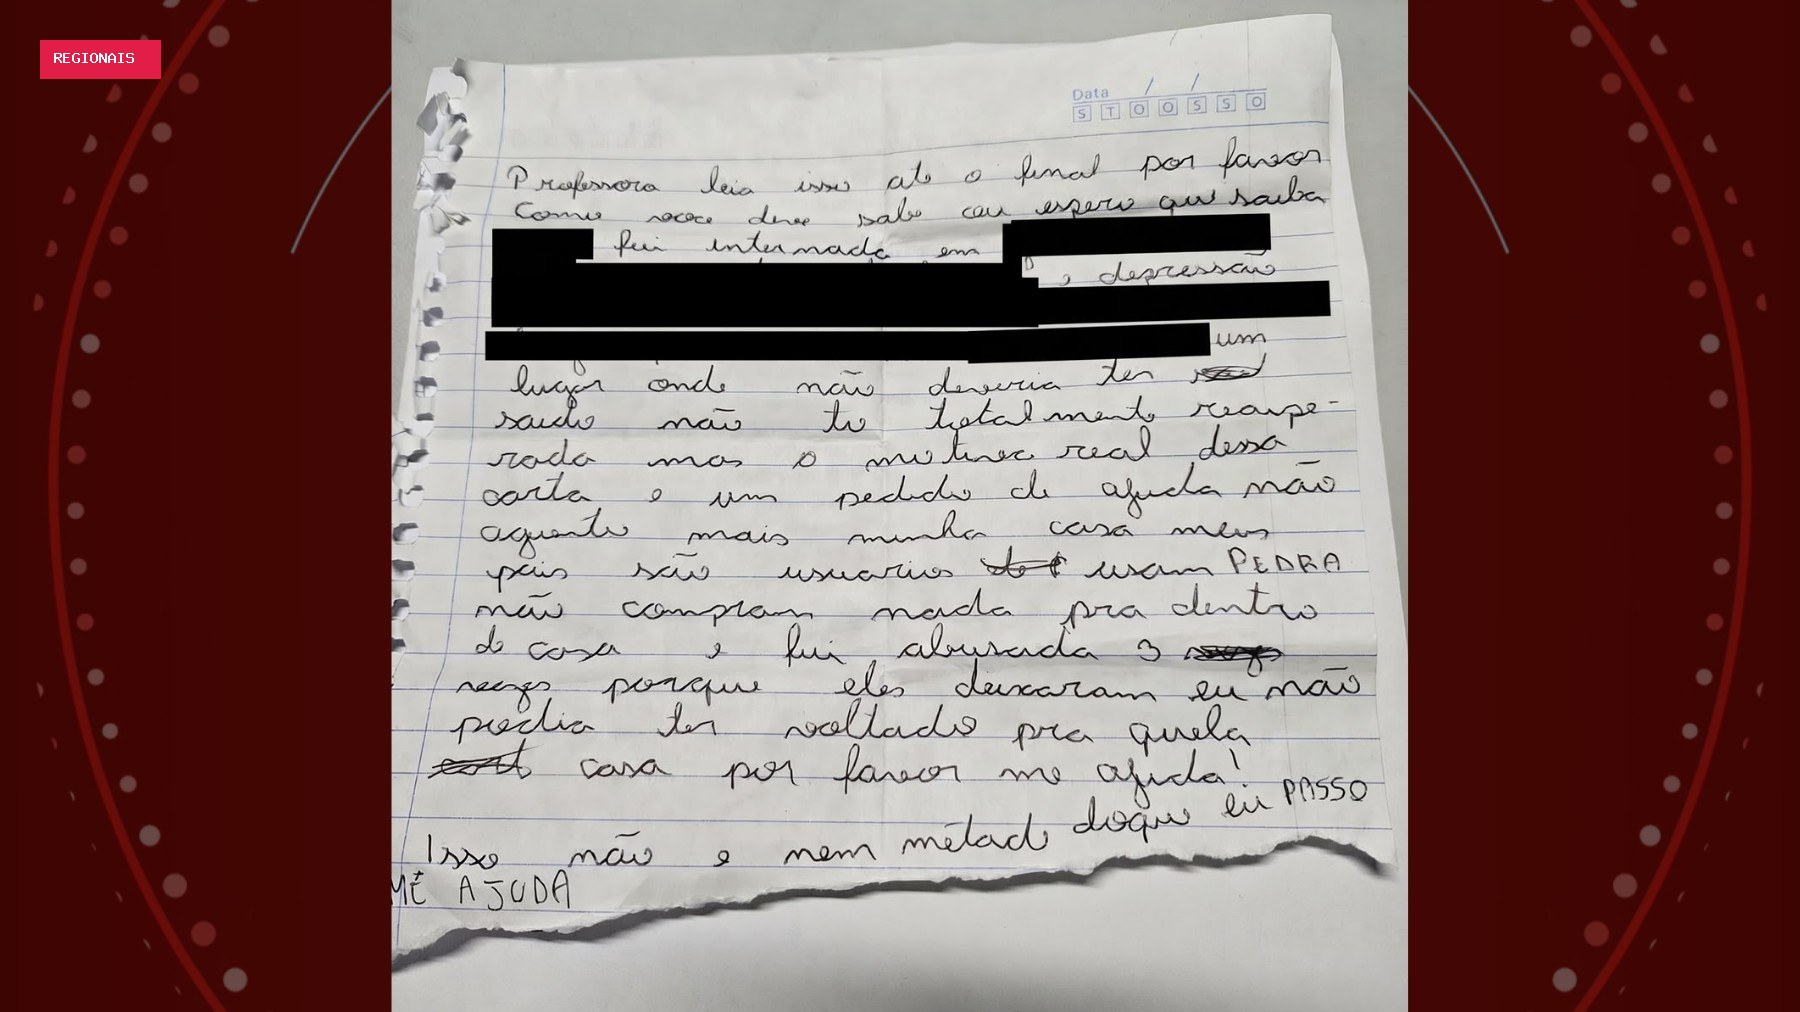 REGIONAIS
Data / /
S T Q Q S S D
Professora leia isso ate o final por favor
Como voce deve sabe eu espero que saiba
fui internada em
e depressão
um
lugar onde não deveria ter
saido não to totalmente recupe-
rada mas o motivo real dessa
carta e um pedido de ajuda não
aguento mais minha casa meus
pais são usuarios usam PEDRA
não compram nada pra dentro
de casa e fui abusada 3
vezes porque eles deixaram eu não
podia ter voltado pra quela
casa por favor me ajuda!
Isso não e nem metade doque eu PASSO
ME AJUDA